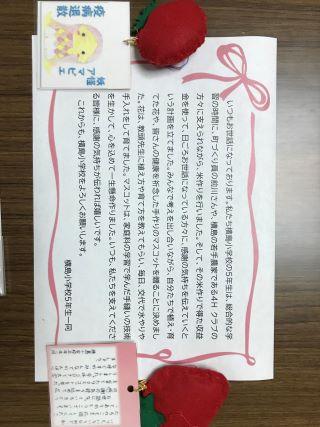 疫病退散
妖怪
アマビエ
いつもお世話になっております。私たち横島小学校の5年生は、総合的な学
習の時間に、町づくり員の前山さんや、横島の若手農家である4Hクラブの
方々に支えられながら、米作りを行いました。そして、その米作りで得た収益
金を使って、日ごろお世話になっている方々に、感謝の気持ちを伝えていくと
いう計画を立てました。みんなで考えを出し合いながら、自分たちで植え・育
てた花や、皆さんの健康を祈念した手作りのマスコットを贈ることに決めまし
た。花は、教頭先生に植え方や育て方を教えてもらい、毎日、交代で水やりや
手入れをして育てました。マスコットは、家庭科の学習で学んだ手縫いの技術
を生かして、心を込めて一生懸命作りました。いつも、私たちを支えてくださ
る皆様に、感謝の気持ちが伝われば嬉しいです。
これからも、横島小学校をよろしくお願いします。
横島小学校5年生一同